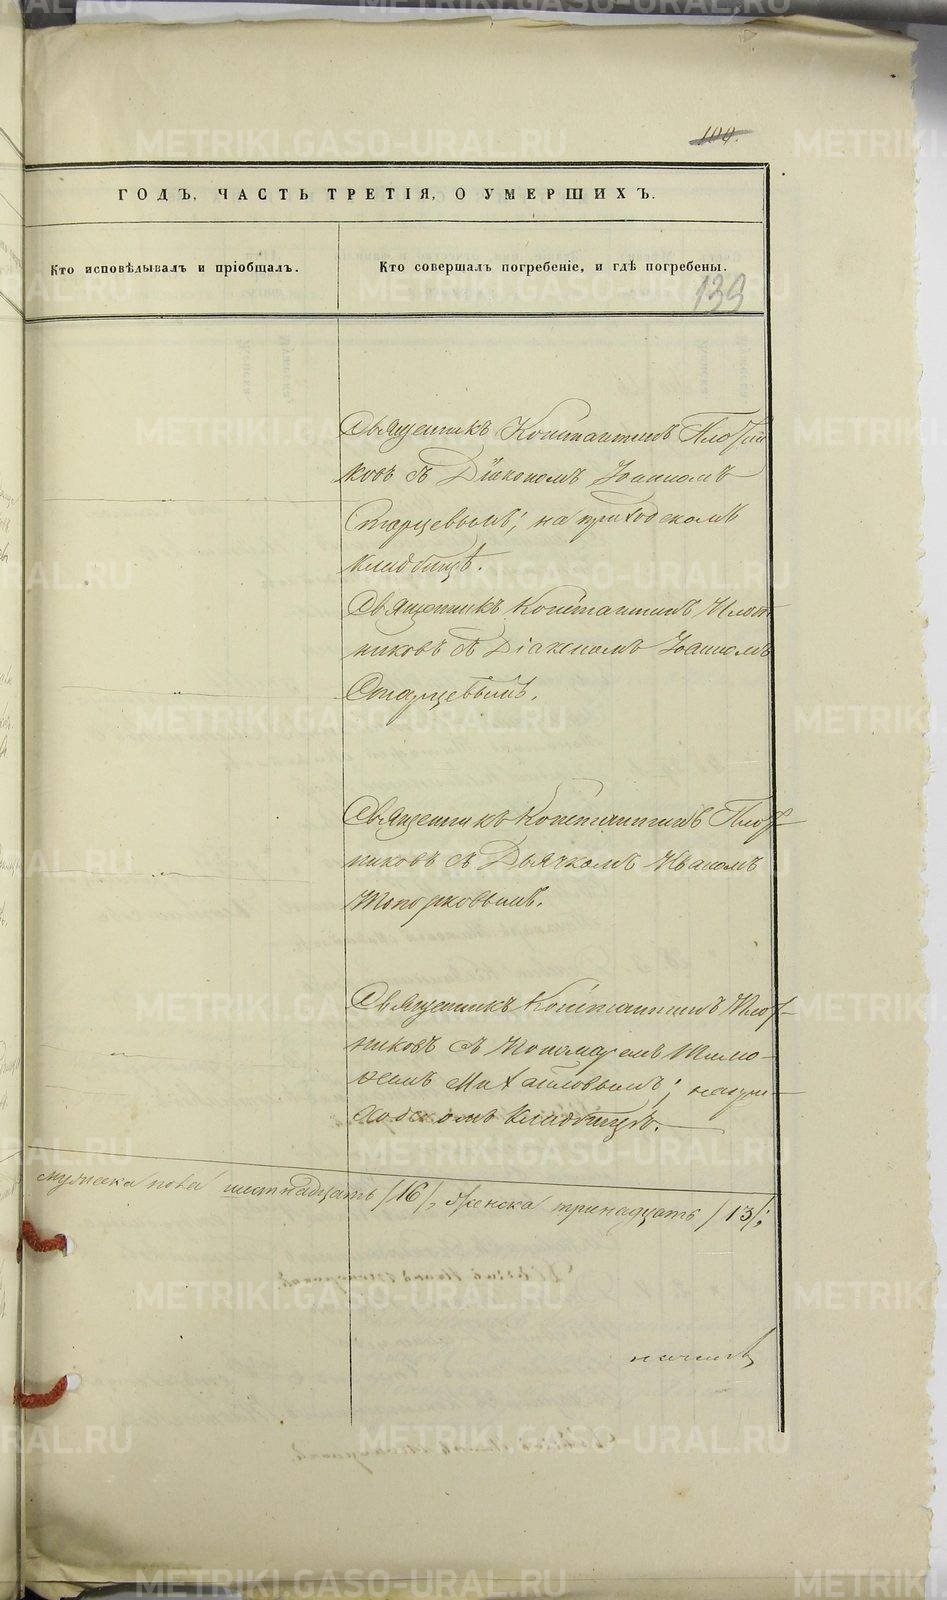 104.
ГОДЪ, ЧАСТЬ ТРЕТІЯ, О УМЕРШИХЪ.
Кто исповѣдывалъ и пріобщалъ.
Кто совершалъ погребеніе, и гдѣ погребены.
139
Священникъ Константинъ Плотни
ковъ съ Діакономъ Іоанномъ
Старцевымъ; на приходскомъ
кладбищѣ.
Священникъ Константинъ Плот
никовъ съ Діакономъ Іоанномъ
Старцевымъ.
Священникъ Константинъ Плот-
никовъ съ Дьячкомъ Иваномъ
Топорковымъ.
Священникъ Константинъ Плот-
никовъ съ Пономаремъ Тимо-
ѳеемъ Михайловымъ; на при-
ходскомъ кладбищѣ.
мужеска пола шестнадцать /16/, женска тринадцать /13/;
METRIKI.GASO-URAL.RU